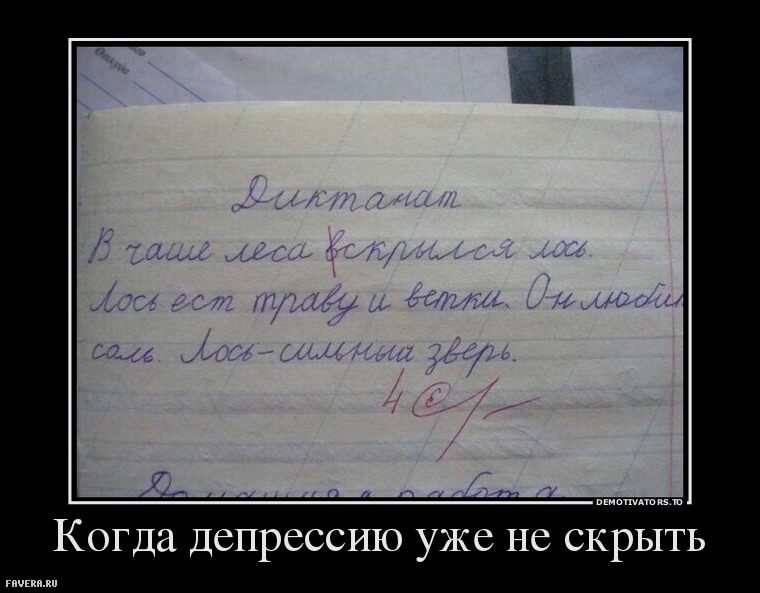 Откуда
Диктанат
В чаше леса вскрылся лось.
Лось ест траву и ветки. Он любит
соль. Лось-сильный зверь.
4
Домашняя работа
DEMOTIVATORS.TO
Когда депрессию уже не скрыть
FAVERA.RU